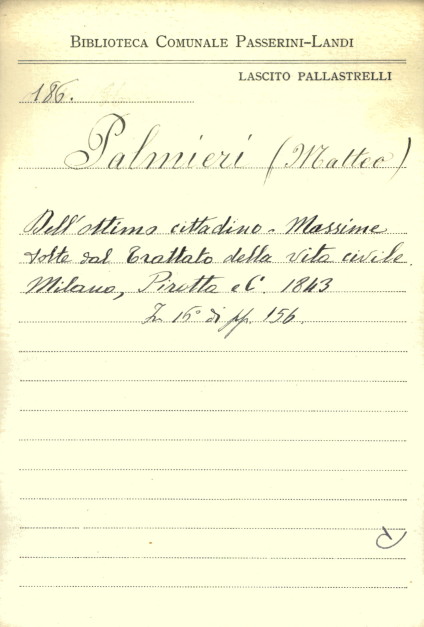 BIBLIOTECA COMUNALE PASSERINI-LANDI
LASCITO PALLASTRELLI
186.
Palmieri (Matteo)
Dell'ottimo cittadino - Massime
tolte dal Trattato della vita civile.
Milano, Pirotta e C. 1843
In 16° di pp. 156.